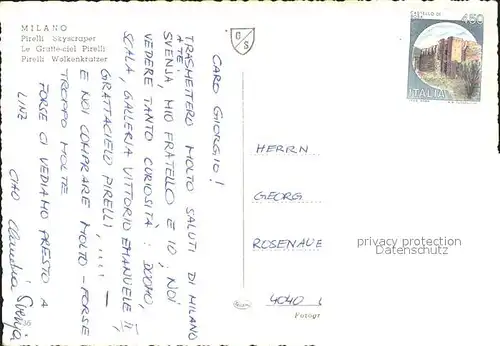 MILANO
Pirelli Skyscraper
Le Gratte-ciel Pirelli
Pirelli Wolkenkratzer
C S
CASTELLO DI
450
ITALIA
CARO GIORGIO!
TRASMETTERO MOLTO SALUTI DI MILANO
A TE.
SVENJA, MIO FRATELLO E IO, NOI
VEDERE TANTO CURIOSITÀ: DUOMO,
SCALA, GALLERIA VITTORIO EMANUELE II,
GRATTACIELO PIRELLI .....! —
E NOI COMPRARE MOLTO - FORSE
TROPPO MOLTE
FORSE CI VEDIAMO PRESTO A
LINZ
CIAO Claudia Svenja
HERRN
GEORG
ROSENAUE
4040
Fotogr
privacy protection
VEROPALMEN